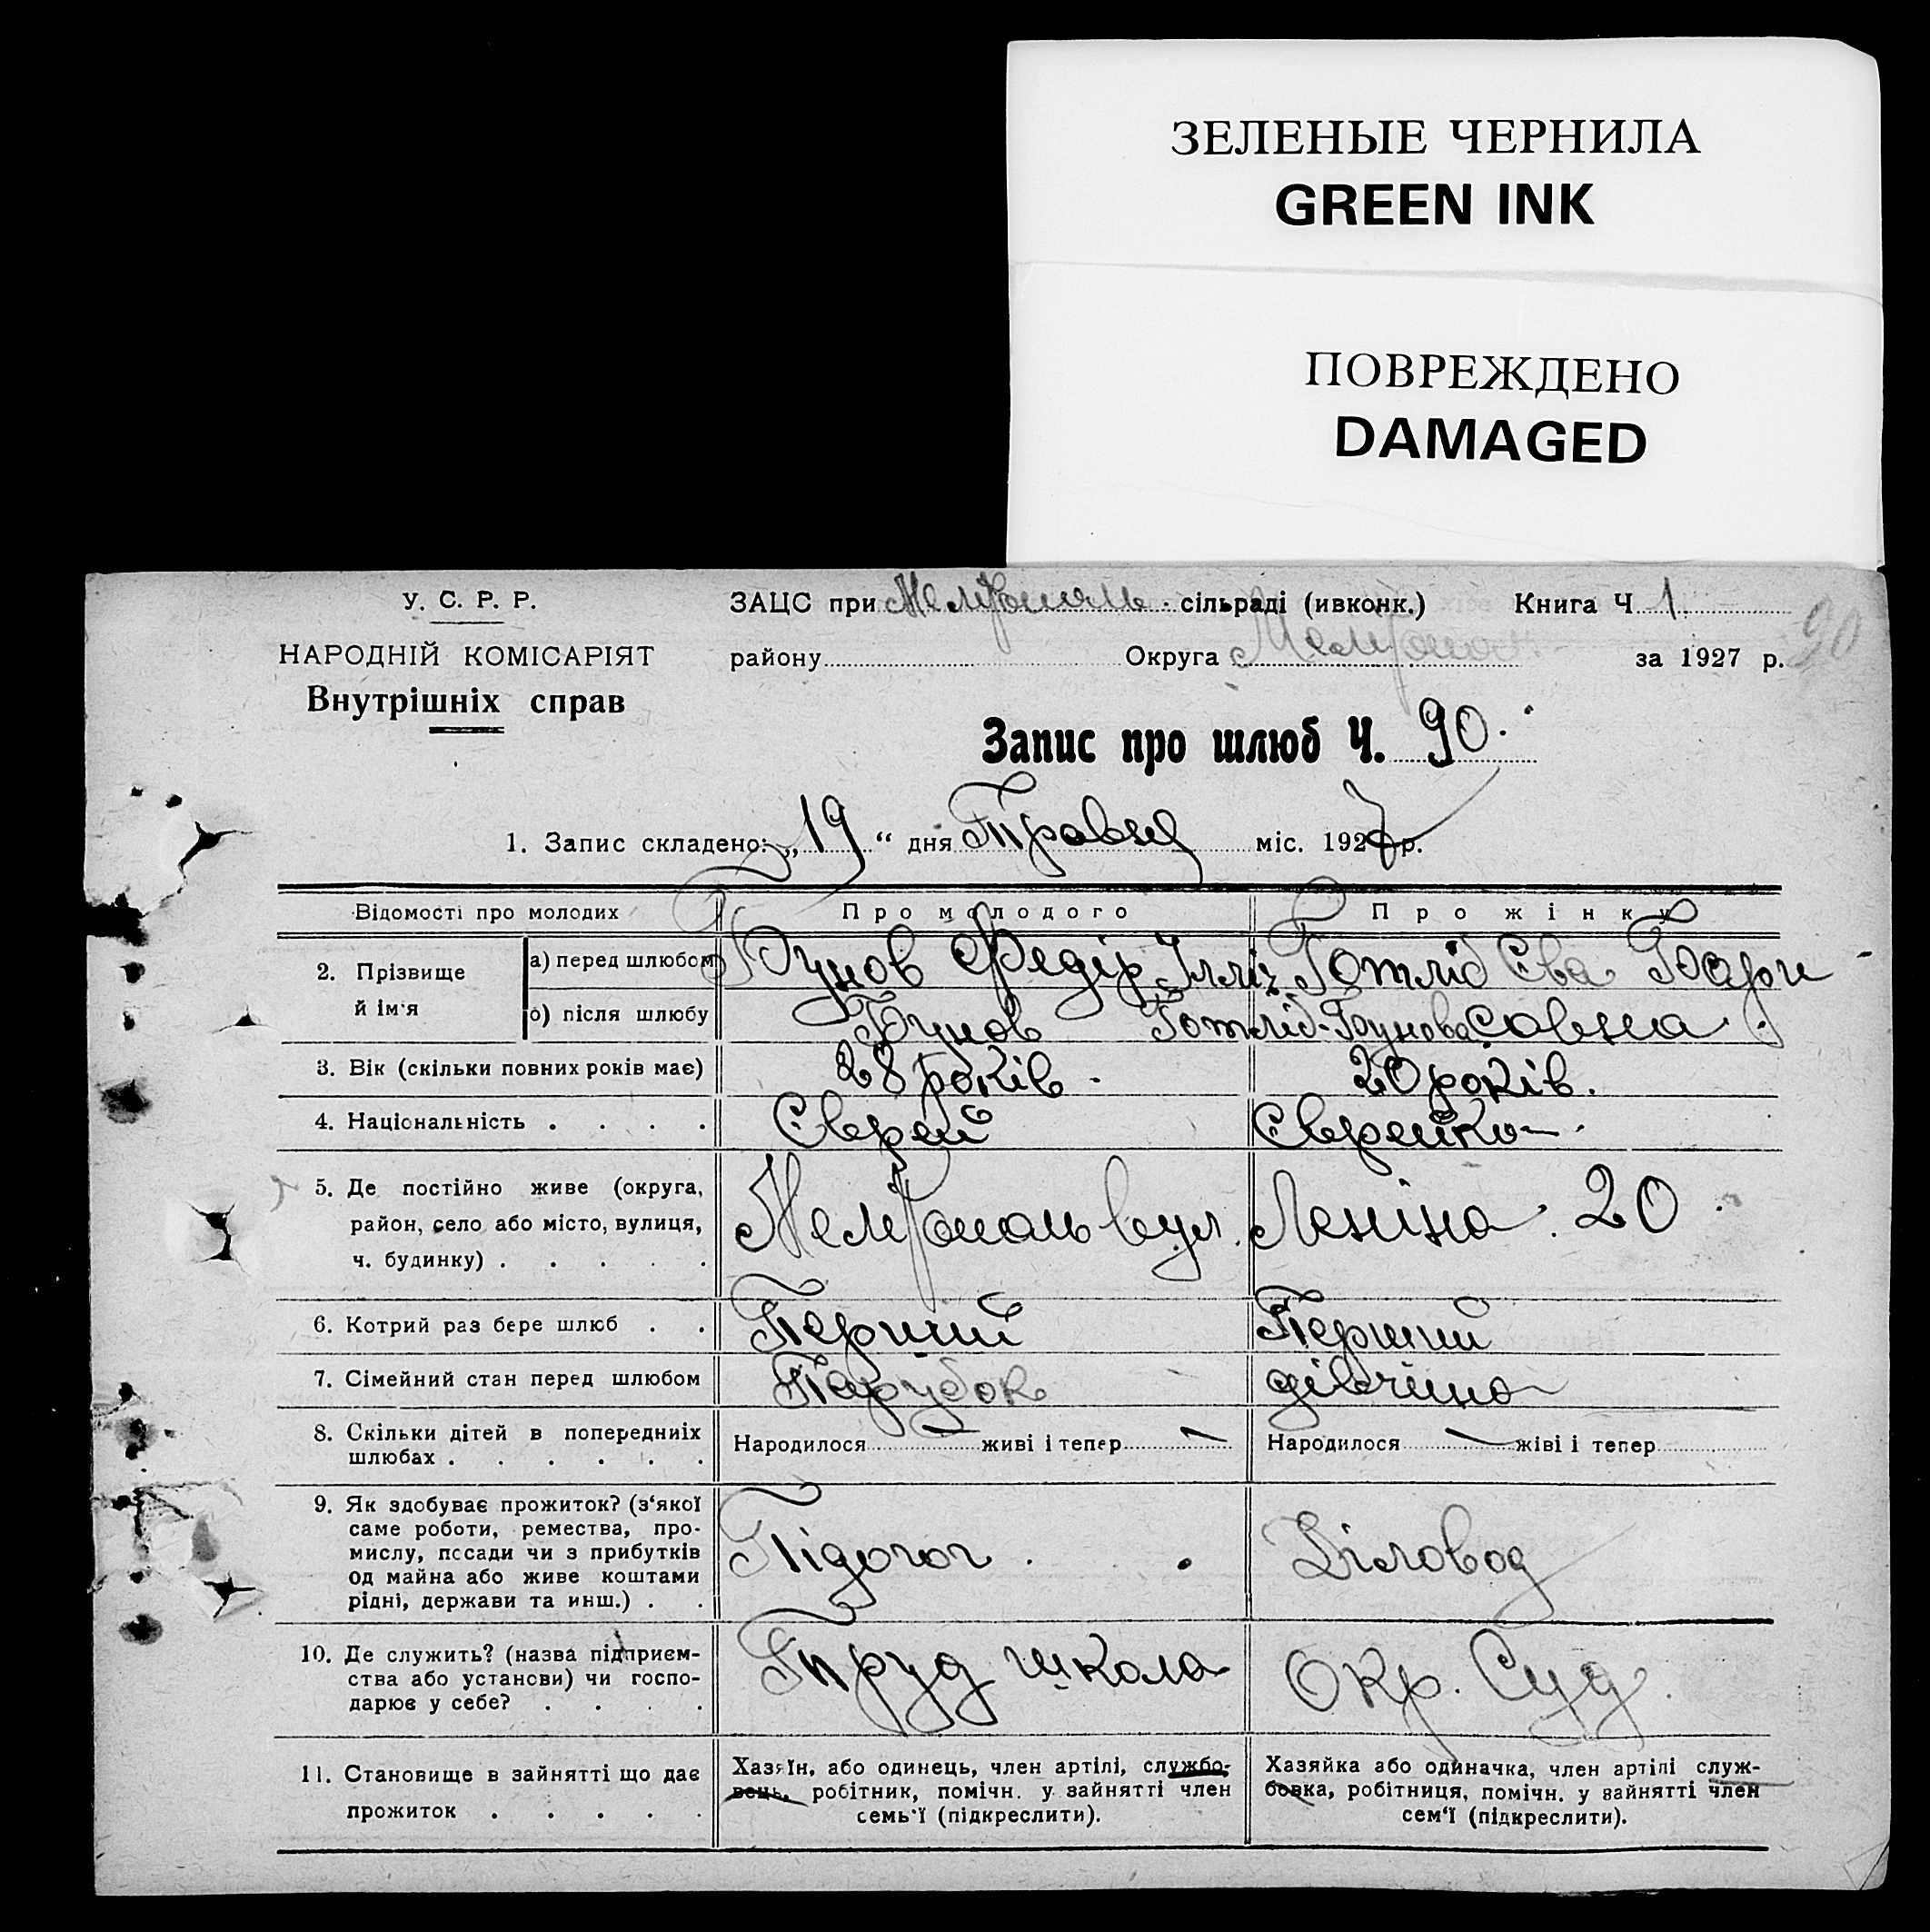 ЗЕЛЕНЫЕ ЧЕРНИЛА
GREEN INK
ПОВРЕЖДЕНО
DAMAGED
У. С. Р. Р.
НАРОДНІЙ КОМІСАРІЯТ
Внутрішніх справ
ЗАЦС при Мелітополь сільраді (ивконк.) Книга Ч 1
району Округа Мелітополь за 1927 р. 90
Запис про шлюб Ч. 90.
1. Запис складено: „19“ дня Травня міс. 1927 р.
Відомості про молодих Про молодого Про жінку
2. Прізвище й ім'я
а) перед шлюбом Бунов Федір Ілліч Готліб Єва Бори
б) після шлюбу Бунов Готліб-Бунова совна
3. Вік (скільки повних років має) 28 років 20 років.
4. Національність . . . . Єврей Єврейка
5. Де постійно живе (округа,
район, село або місто, вулиця,
ч. будинку) . . . . .
Мелітополь вул. Леніна. 20
6. Котрий раз бере шлюб . . Перший Перший
7. Сімейний стан перед шлюбом Парубок дівчина
8. Скільки дітей в попередниіх
шлюбах . . . . . .
Народилося — живі і тепер — Народилося — жіві і тепер
9. Як здобуває прожиток? (з‘якої
саме роботи, ремества, про-
мислу, посади чи з прибутків
од майна або живе коштами
рідні, держави та инш.) . .
Підогог Діловод
10. Де служить? (назва підприєм-
ства або установи) чи госпо-
дарює у себе? . . . .
Труд школа Окр. Суд
11. Становище в зайнятті що дає
прожиток . . . . .
Хазяїн, або одинець, член артілі, службо-
вець, робітник, помічн. у зайнятті член
семь'ї (підкреслити).
Хазяйка або одиначка, член артілі служ-
бовка, робітниця, помічн. у зайнятті член
сем‘ї (підкреслити).